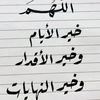 اللهم
خير الأيام
وخير الأقدار
وخير النهايات